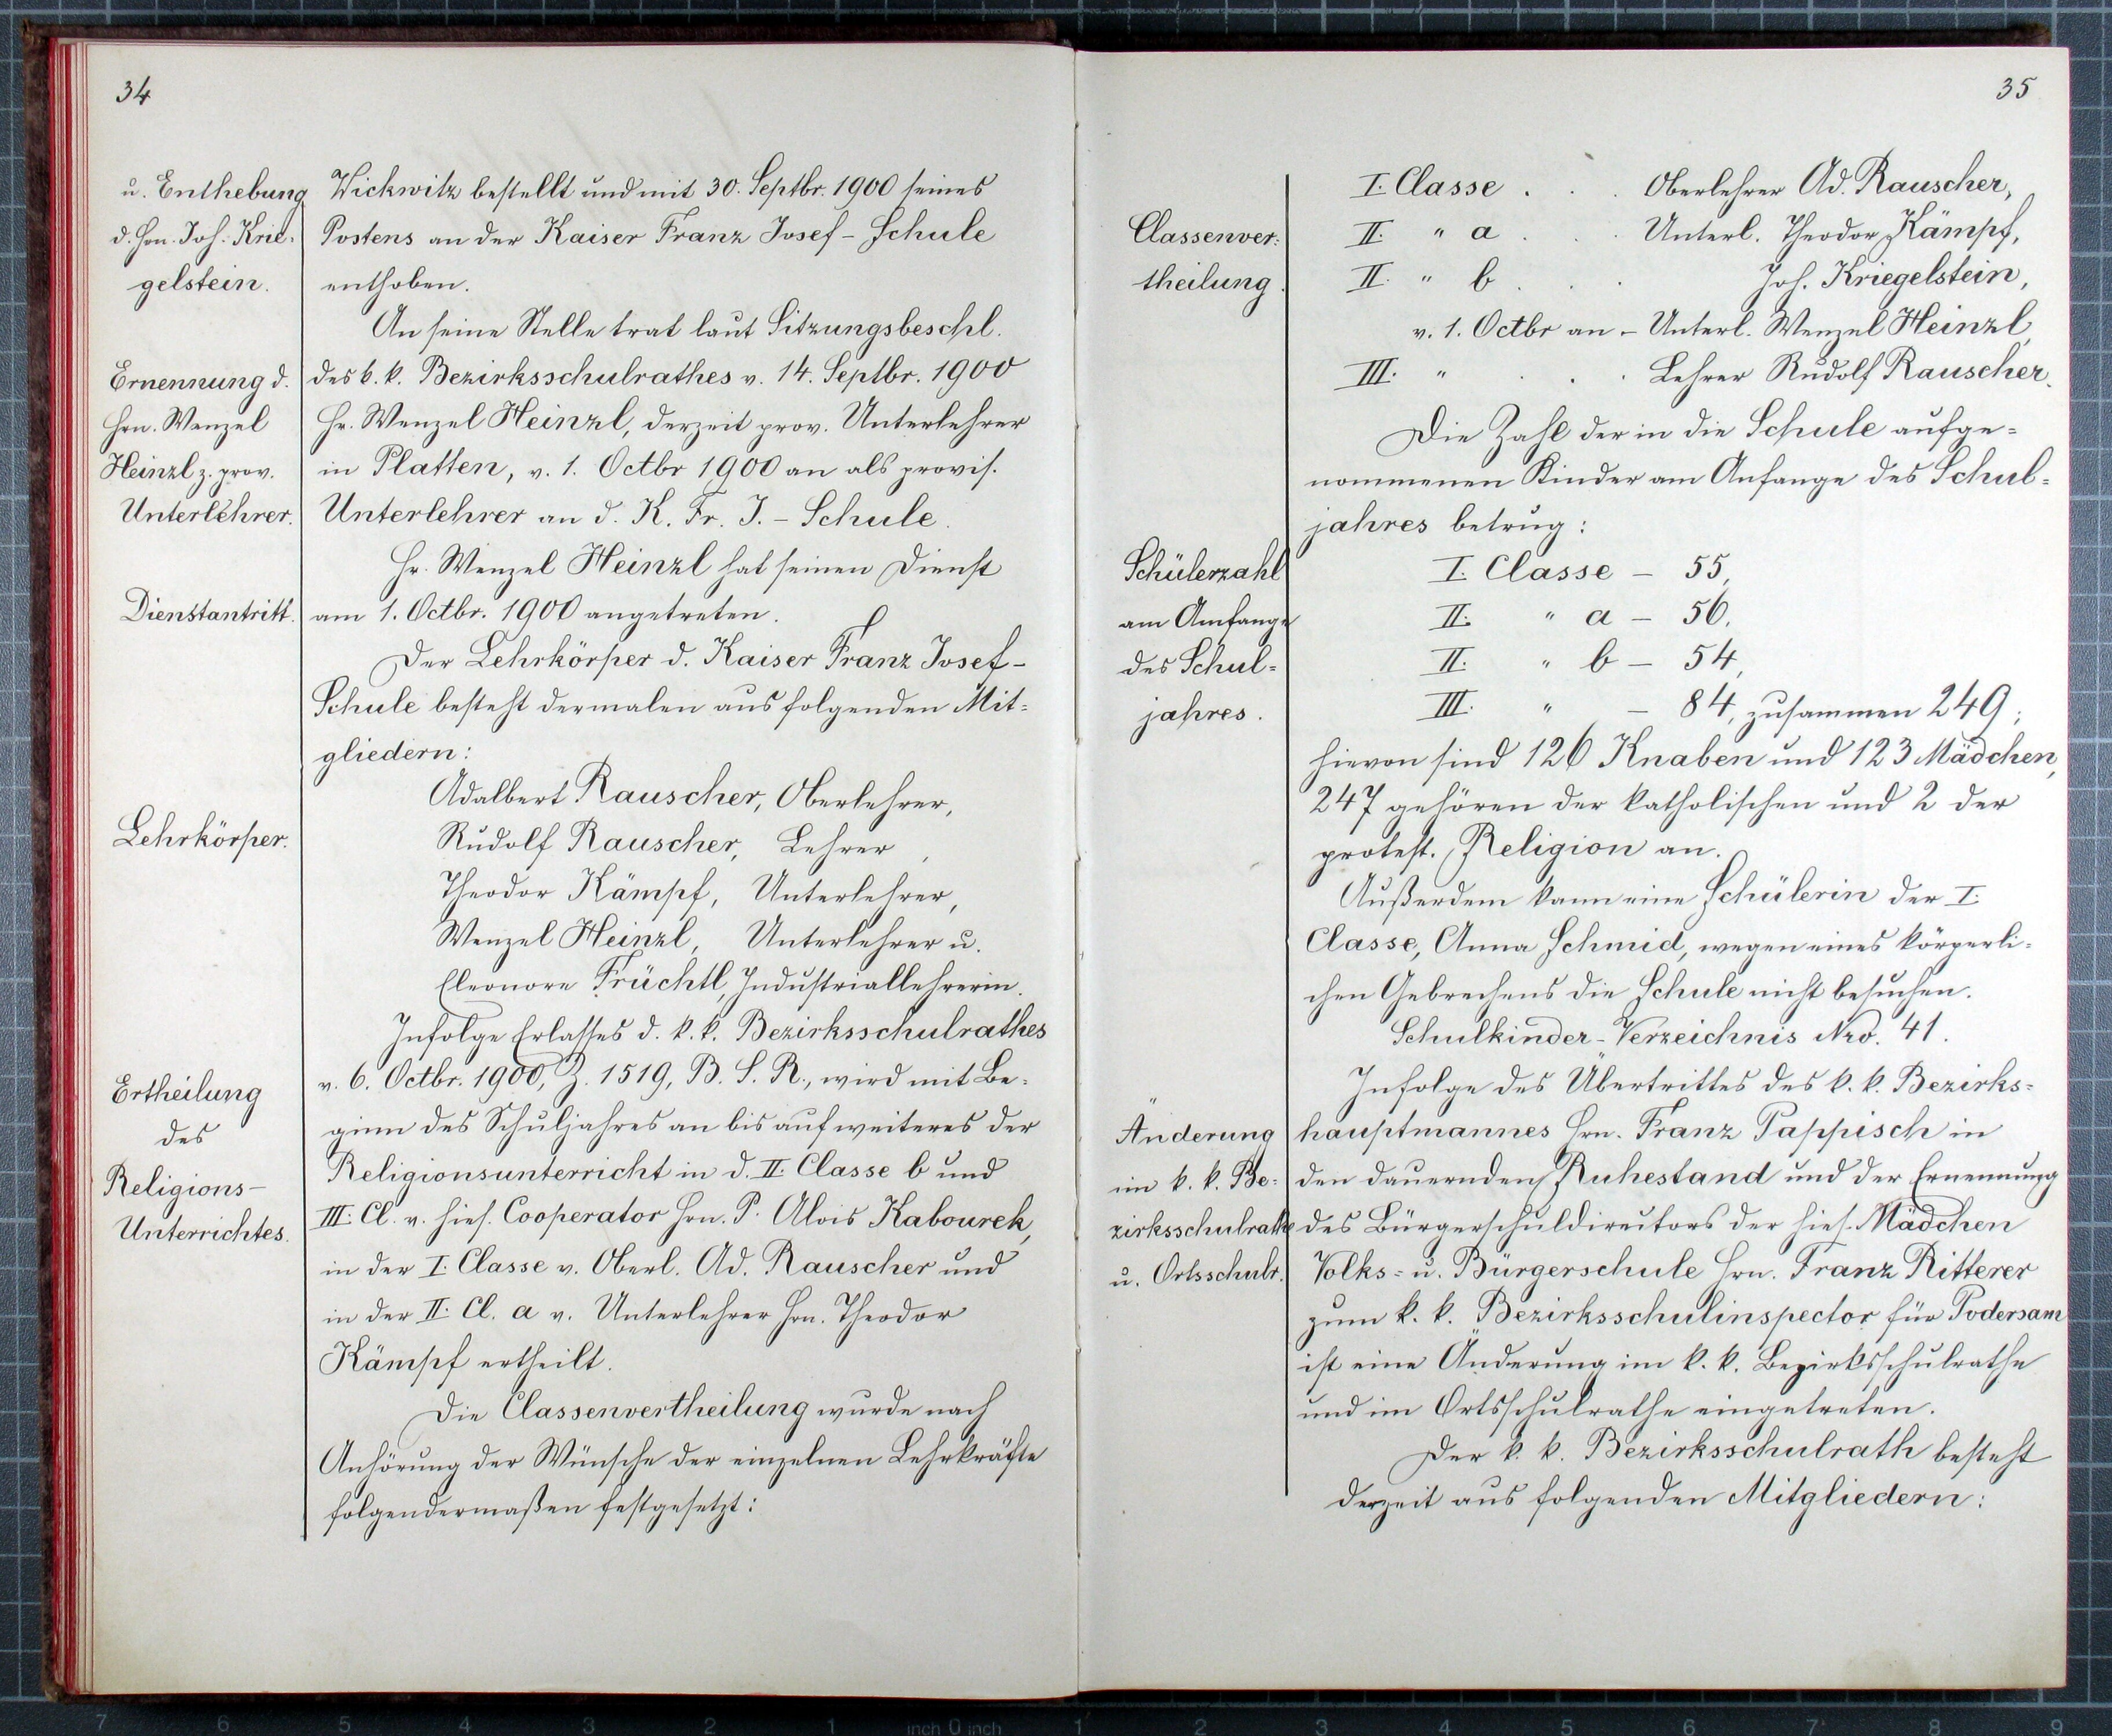 34
u. Enthebung
d. Hrn. Joh. Krie-
gelstein.
Wickwitz bestellt und mit 30. Septbr. 1900 seines
Postens an der Kaiser Franz Josef-Schule
enthoben.
An seine Stelle trat laut Sitzungsbeschl.
Ernennung d.
Hrn. Wenzel
Heinzl z. prov.
Unterlehrer.
des k. k. Bezirksschulrathes v. 14. Septbr. 1900
Hr. Wenzel Heinzl, derzeit prov. Unterlehrer
in Platten, v. 1. Octbr 1900 an als provis.
Unterlehrer an d. K. Fr. J.-Schule.
Hr. Wenzel Heinzl hat seinen Dienst
Dienstantritt.
am 1. Octbr. 1900 angetreten.
Der Lehrkörper d. Kaiser Franz Josef-
Schule besteht dermalen aus folgenden Mit-
gliedern:
Lehrkörper.
Adalbert Rauscher, Oberlehrer,
Rudolf Rauscher, Lehrer,
Theodor Kämpf, Unterlehrer,
Wenzel Heinzl, Unterlehrer u.
Eleonore Früchtl, Industriallehrerin.
Infolge Erlasses d. k. k. Bezirksschulrathes
Ertheilung
des
Religions-
Unterrichtes.
v. 6. Octbr. 1900, Z. 1519, B. S. R., wird mit Be-
ginn des Schuljahres an bis auf weiteres der
Religionsunterricht in d. II. Classe b und
III. Cl. v. hies. Cooperator Hrn. P. Alois Kabourek,
in der I. Classe v. Oberl. Ad. Rauscher und
in der II. Cl. a v. Unterlehrer Hrn. Theodor
Kämpf ertheilt.
Die Classenvertheilung wurde nach
Anhörung der Wünsche der einzelnen Lehrkräfte
folgendermaßen festgesetzt:
35
Classenver-
theilung.
I. Classe . . . Oberlehrer Ad. Rauscher,
II. " a . . . Unterl. Theodor Kämpf,
II. " b . . . Joh. Kriegelstein,
v. 1. Octbr an - Unterl. Wenzel Heinzl,
III. " . . . Lehrer Rudolf Rauscher.
Die Zahl der in die Schule aufge-
nommenen Kinder am Anfange des Schul-
jahres betrug:
Schülerzahl
am Anfange
des Schul-
jahres.
I. Classe - 55,
II. " a - 56,
II. " b - 54,
III. " - 84, zusammen 249;
hievon sind 126 Knaben und 123 Mädchen,
247 gehören der katholischen und 2 der
protest. Religion an.
Außerdem kann eine Schülerin der I.
Classe, Anna Schmid, wegen eines körperli-
chen Gebrechens die Schule nicht besuchen.
Schulkinder-Verzeichnis Nro. 41.
Infolge des Übertrittes des k. k. Bezirks-
Änderung
im k. k. Be-
zirksschulrathe
u. Ortsschulr.
hauptmannes Hrn. Franz Pappisch in
den dauernden Ruhestand und der Ernennung
des Bürgerschuldirectors der hies. Mädchen
Volks- u. Bürgerschule Hrn. Franz Ritterer
zum k. k. Bezirksschulinspector für Podersam
ist eine Änderung im k. k. Bezirksschulrathe
und im Ortsschulrathe eingetreten.
Der k. k. Bezirksschulrath besteht
derzeit aus folgenden Mitgliedern:
7 6 5 4 3 2 1 inch 0 inch 1 2 3 4 5 6 7 8 9